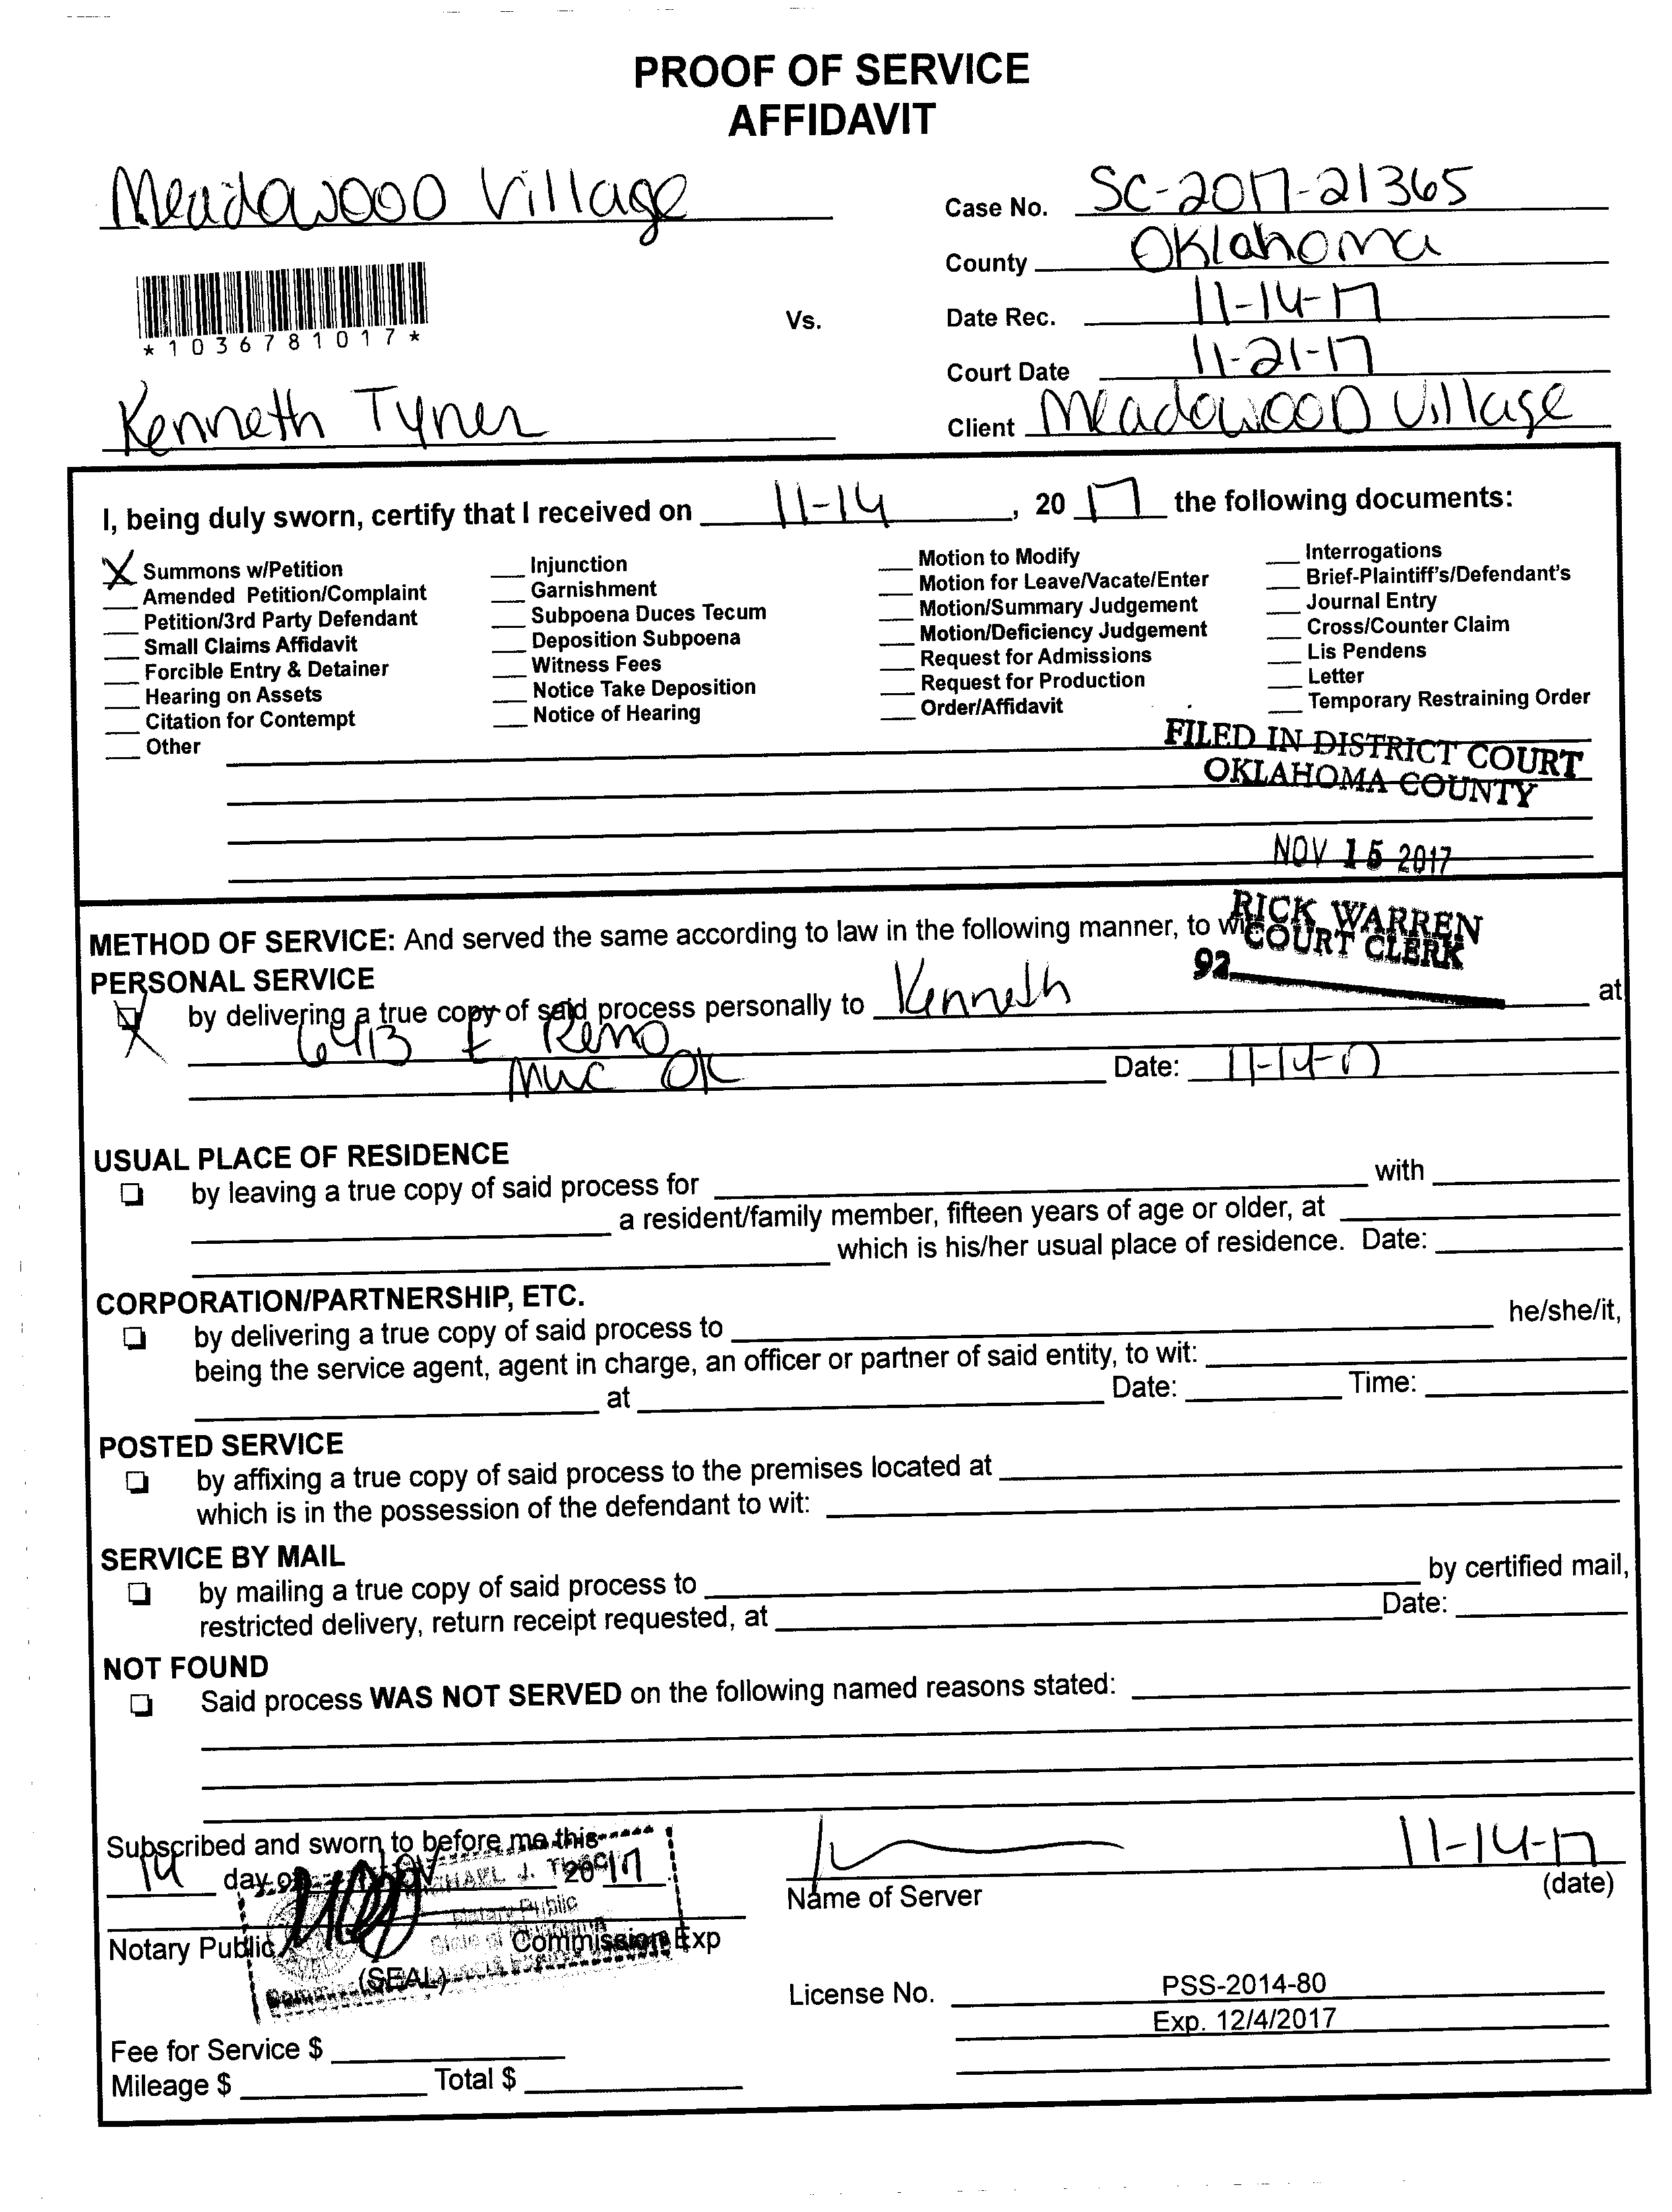 PROOF OF SERVICE
AFFIDAVIT
Meadowood Village
Case No. SC-2017-21365
County Oklahoma
*1036781017*
Vs.
Date Rec. 11-14-17
Court Date 11-21-17
Kenneth Tyner
Client Meadowood Village
I, being duly sworn, certify that I received on 11-14, 20 17 the following documents:
X Summons w/Petition
__ Amended Petition/Complaint
__ Petition/3rd Party Defendant
__ Small Claims Affidavit
__ Forcible Entry & Detainer
__ Hearing on Assets
__ Citation for Contempt
__ Other
__ Injunction
__ Garnishment
__ Subpoena Duces Tecum
__ Deposition Subpoena
__ Witness Fees
__ Notice Take Deposition
__ Notice of Hearing
__ Motion to Modify
__ Motion for Leave/Vacate/Enter
__ Motion/Summary Judgement
__ Motion/Deficiency Judgement
__ Request for Admissions
__ Request for Production
__ Order/Affidavit
__ Interrogations
__ Brief-Plaintiff's/Defendant's
__ Journal Entry
__ Cross/Counter Claim
__ Lis Pendens
__ Letter
__ Temporary Restraining Order
FILED IN DISTRICT COURT
OKLAHOMA COUNTY
NOV 15 2017
RICK WARREN
COURT CLERK
92
METHOD OF SERVICE: And served the same according to law in the following manner, to wit:
PERSONAL SERVICE
X by delivering a true copy of said process personally to Kenneth at
6413 E Reno
MWC OK Date: 11-14-17
USUAL PLACE OF RESIDENCE
by leaving a true copy of said process for ____ with ____
____ a resident/family member, fifteen years of age or older, at ____
____ which is his/her usual place of residence. Date: ____
CORPORATION/PARTNERSHIP, ETC.
by delivering a true copy of said process to ____ he/she/it,
being the service agent, agent in charge, an officer or partner of said entity, to wit: ____
____ at ____ Date: ____ Time: ____
POSTED SERVICE
by affixing a true copy of said process to the premises located at ____
which is in the possession of the defendant to wit: ____
SERVICE BY MAIL
by mailing a true copy of said process to ____ by certified mail,
restricted delivery, return receipt requested, at ____ Date: ____
NOT FOUND
Said process WAS NOT SERVED on the following named reasons stated: ____
Subscribed and sworn to before me this
14 day of Nov 2017
Notary Public
Commission Exp
(SEAL)
Notary Public
State of Oklahoma
Name of Server
11-14-17
(date)
License No. PSS-2014-80
Exp. 12/4/2017
Fee for Service $ ____
Mileage $ ____ Total $ ____